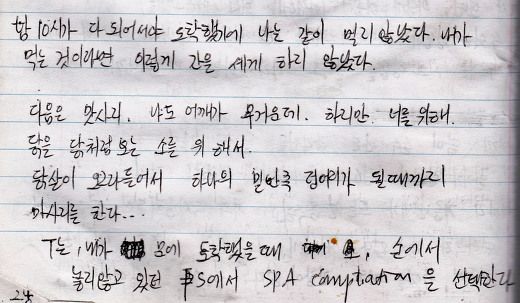 밤 10시가 다 되어서야 도착했기에 나는 같이 멀리 않았다. 내가
먹는 것이라면 이렇게 간을 세게 하지 않았다.
다음은 맛사지. 나도 어깨가 무거운데. 하지만 너를 위해.
닭을 닭처럼 보는 소를 위해서.
닭살이 오그라들어서 하나의 덩어리가 될때까지
마사지를 한다...
T는, 내가 문에 도착했을 때 손에서
놀리않고 있던 PS에서 SPA compilation 을 선택한다
24